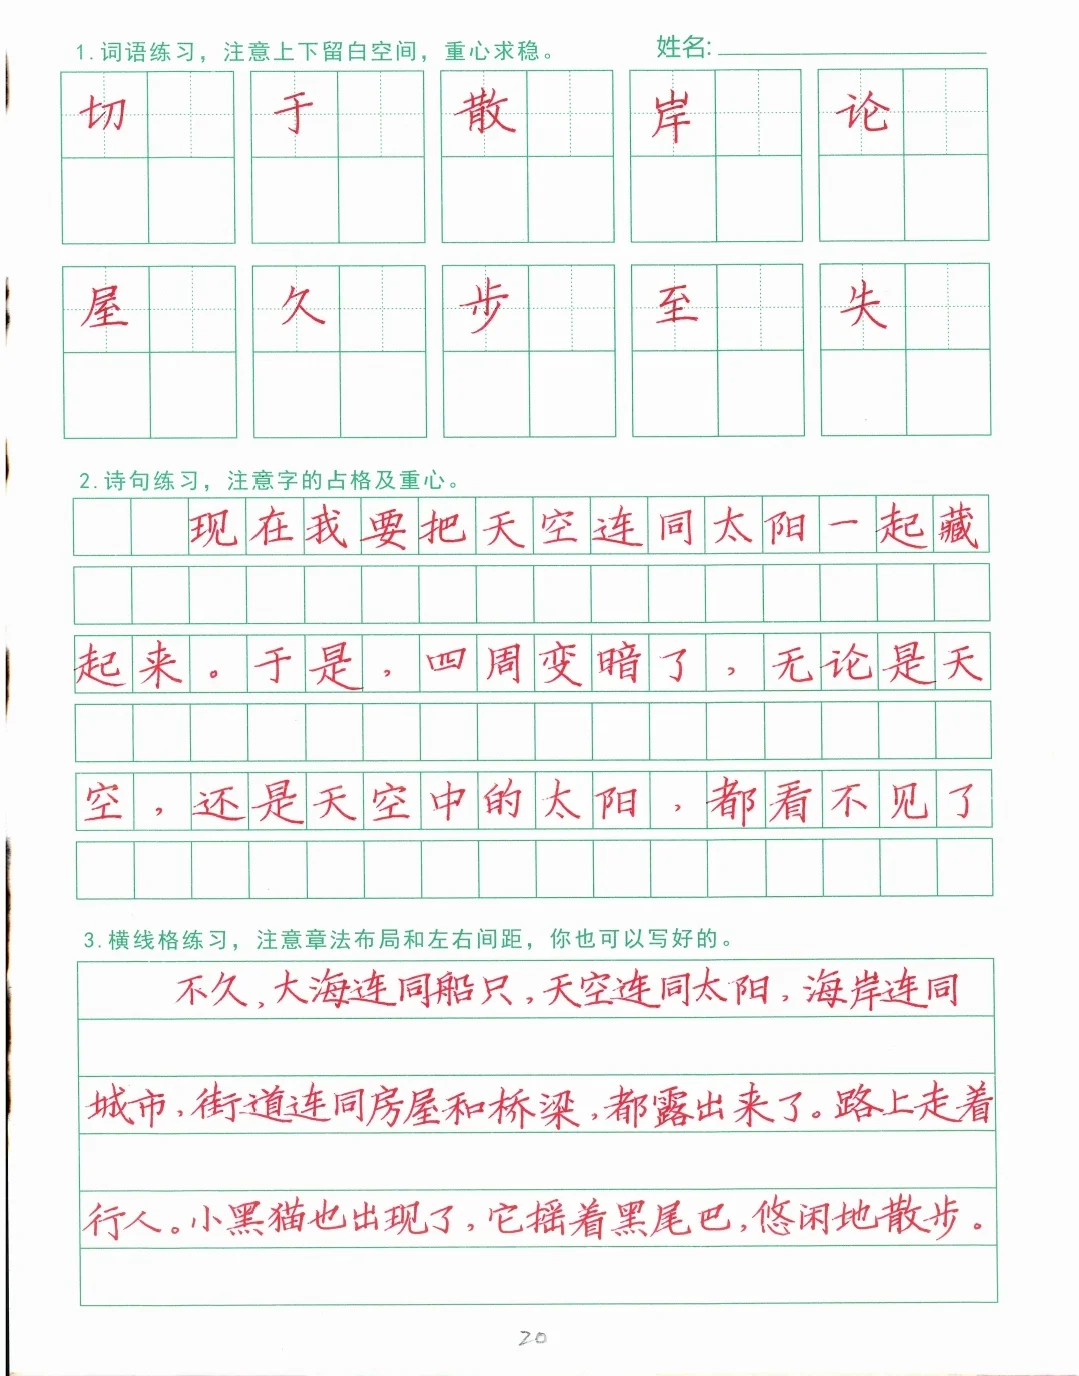 1.词语练习，注意上下留白空间，重心求稳。 姓名:
切 于 散 岸 论
屋 久 步 至 失
2.诗句练习，注意字的占格及重心。
现在我要把天空连同太阳一起藏
起来。于是，四周变暗了，无论是天
空，还是天空中的太阳，都看不见了
3.横线格练习，注意章法布局和左右间距，你也可以写好的。
不久，大海连同船只，天空连同太阳，海岸连同
城市，街道连同房屋和桥梁，都露出来了。路上走着
行人。小黑猫也出现了，它摇着黑尾巴，悠闲地散步。
20